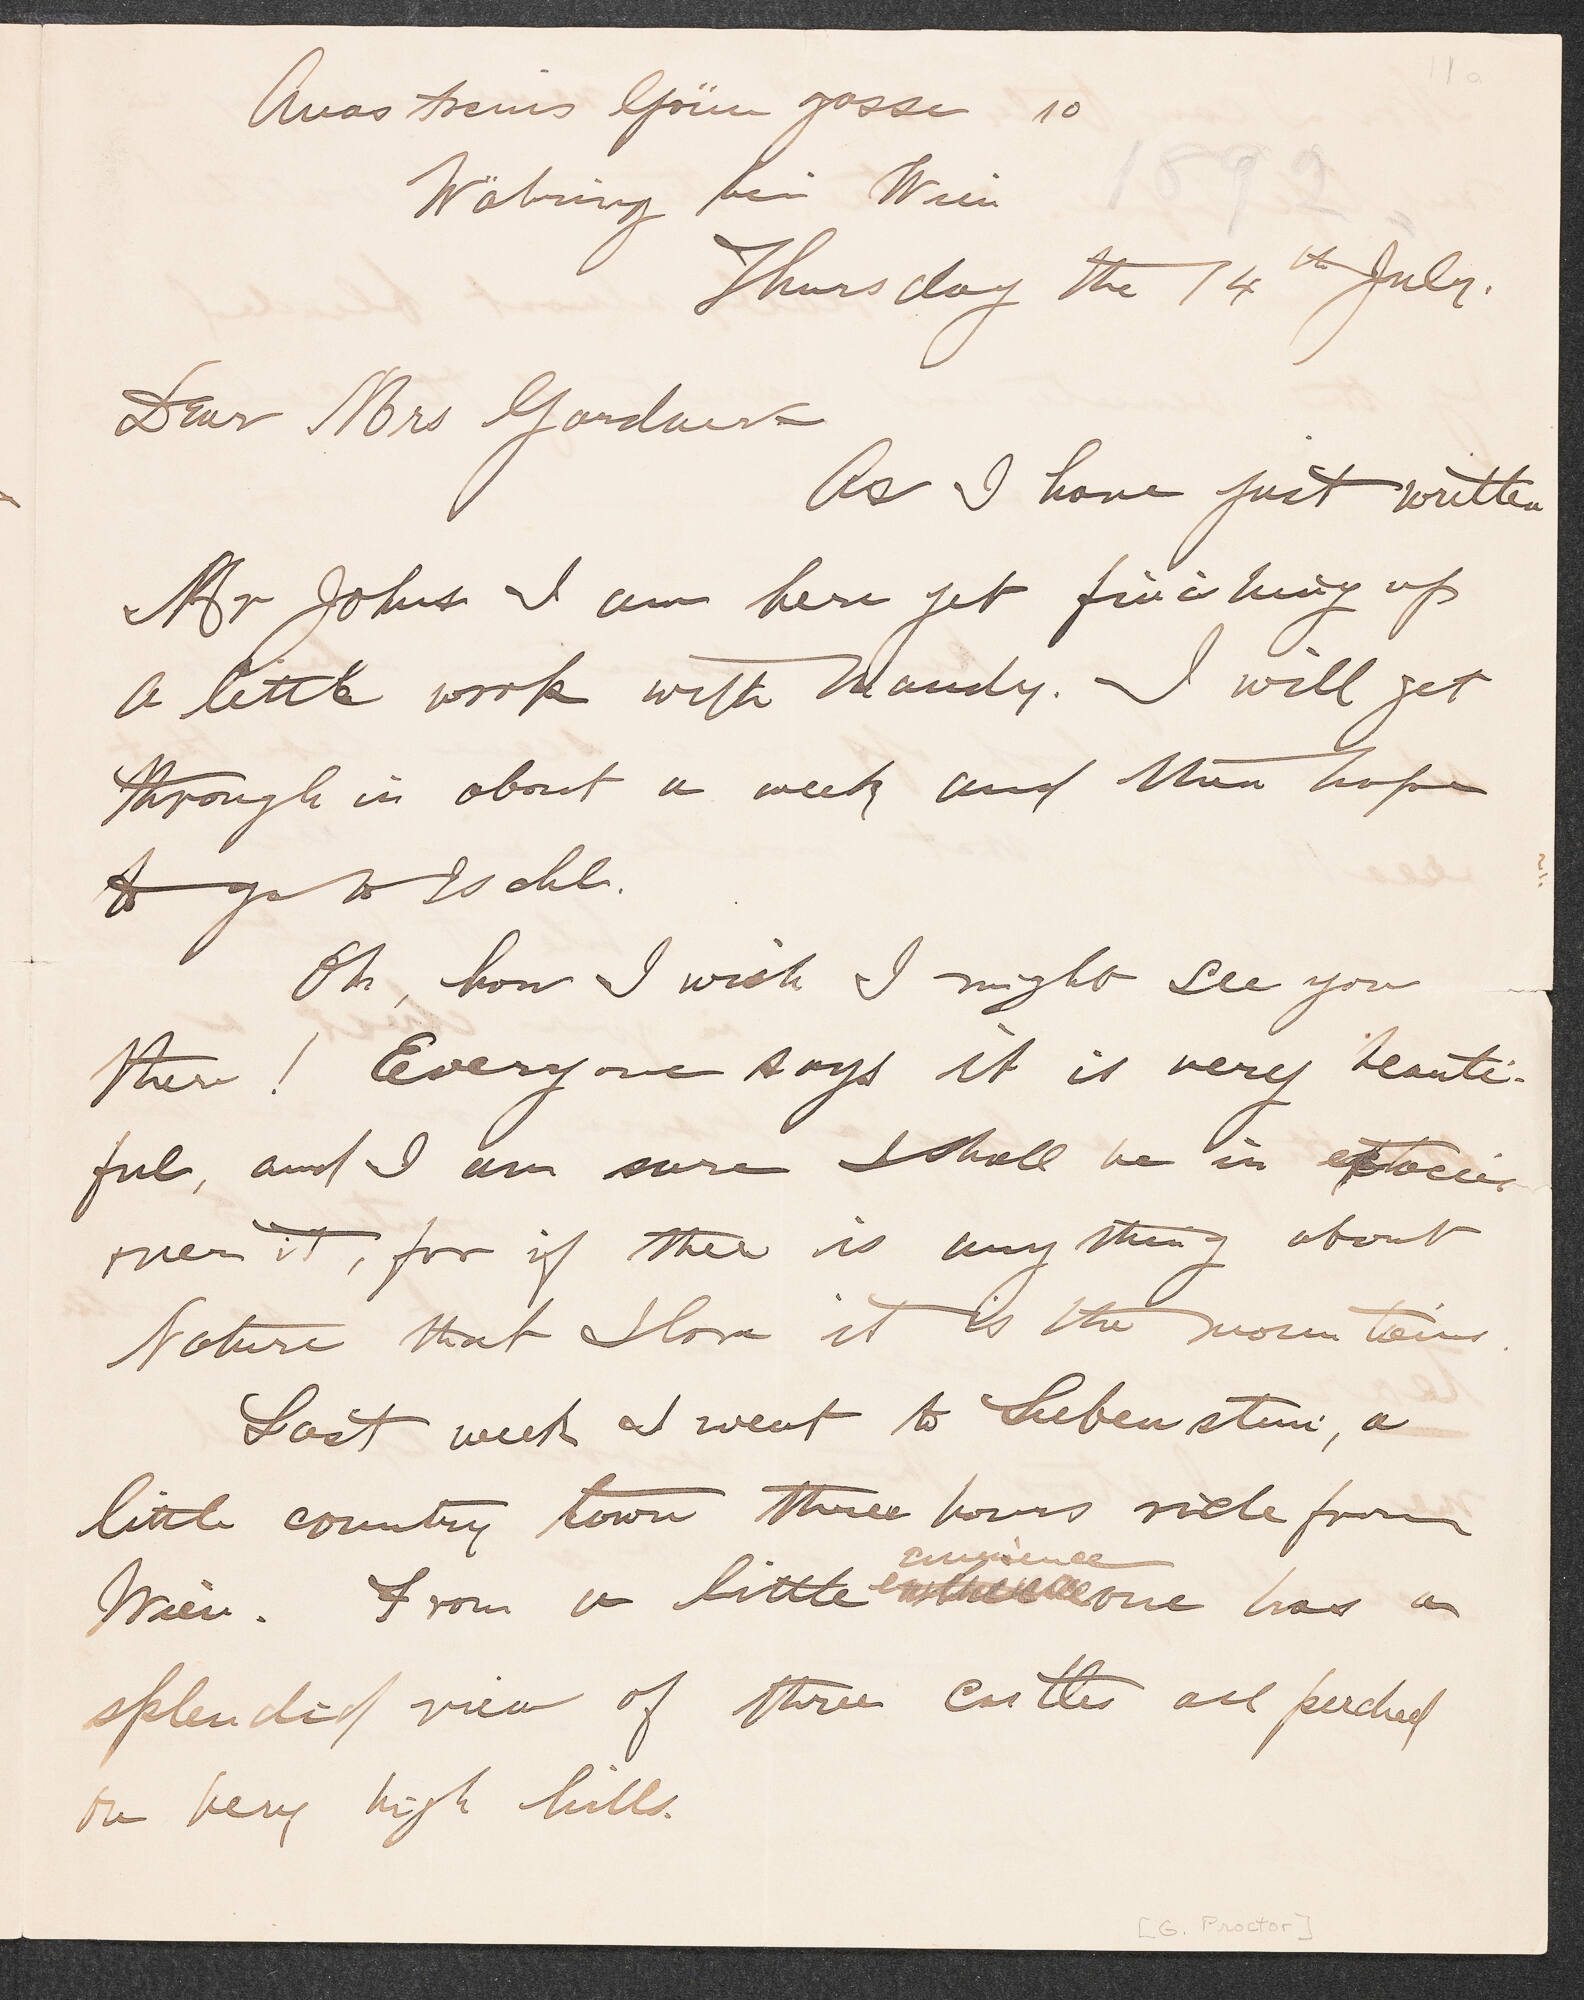 11a
Anastasius Grüngasse 10
Währing bei Wien
1892
Thursday the 14th July.
Dear Mrs Gardner—
As I have just written
Mr Johns I am here yet finishing up
a little work with Mandy. I will get
through in about a week and then hope
to go to Ischl.
Oh, how I wish I might see you
there! Everyone says it is very beauti-
ful, and I am sure I shall be in
over it, for if there is anything about
Nature that I love it is the mountains.
Last week I went to Liebenstein, a
little country town three hours ride from
Wien. From a little eminence one has a
splendid view of three castles all perched
on very high hills.
[G. Proctor]